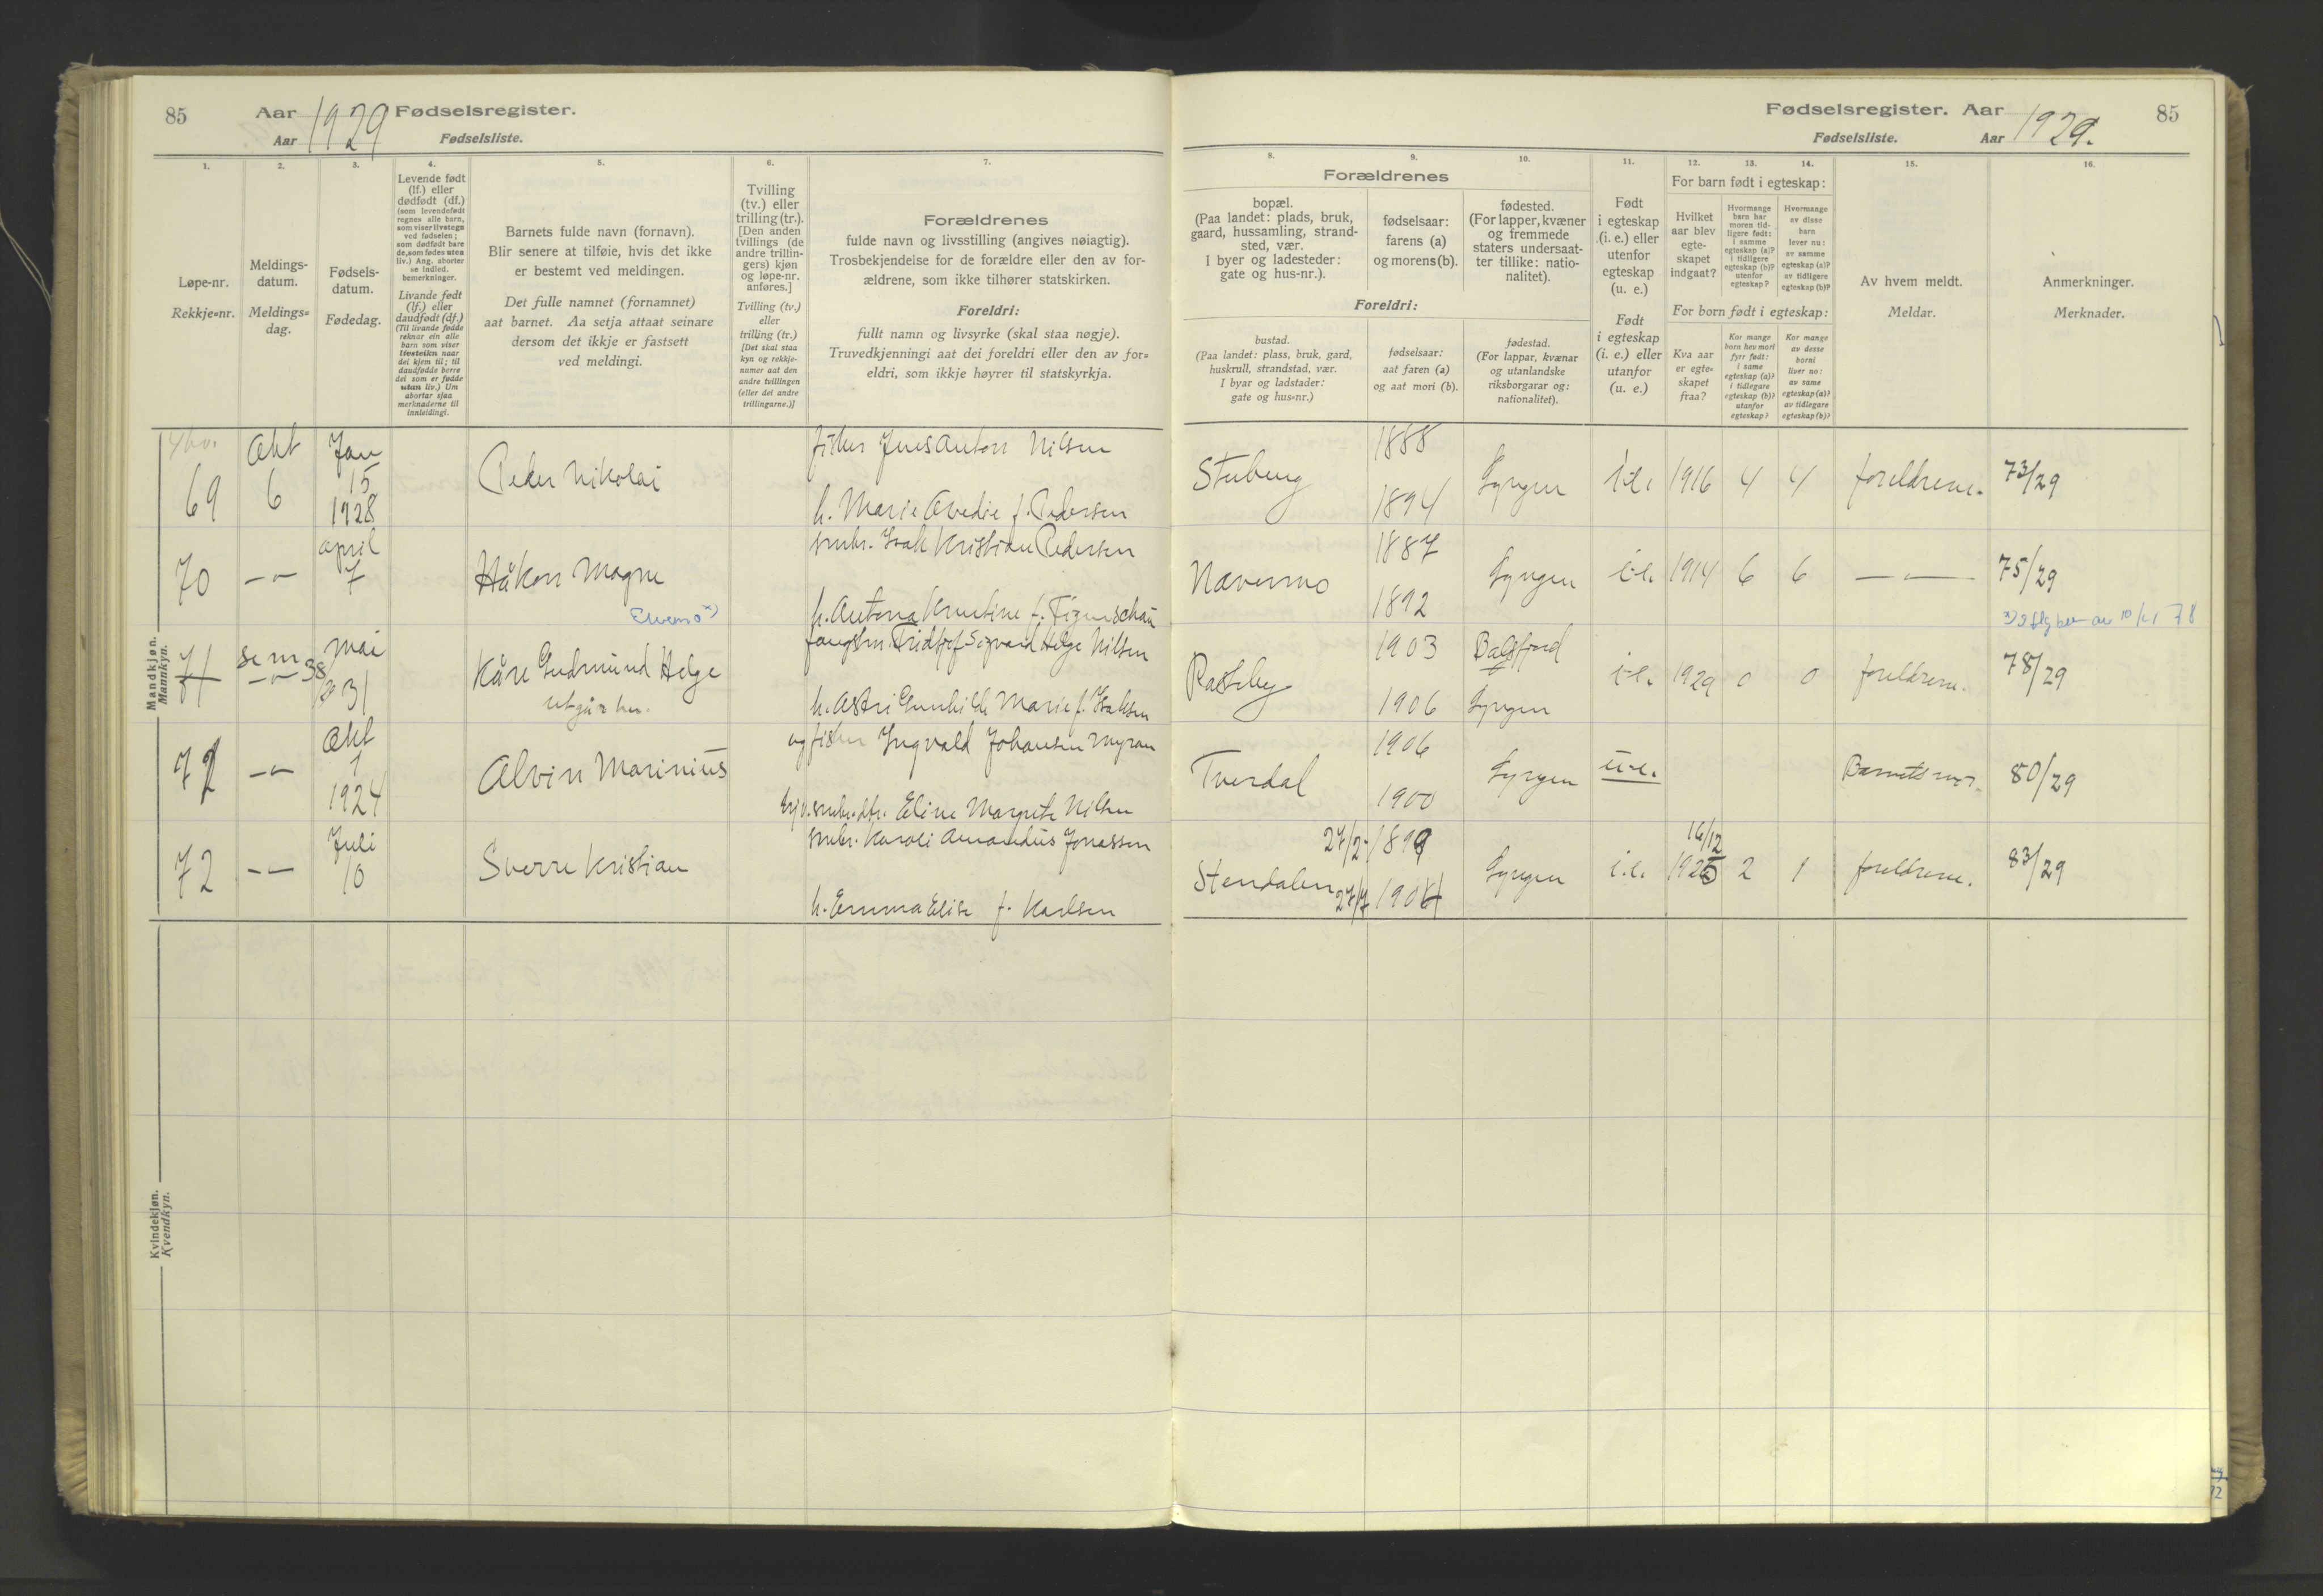 85
Aar 1929 Fødselsregister.
Aar Fødselsliste.
1.
2.
3.
4.
5.
6.
7.
Løpe-nr.
Rekkje=nr.
Meldings-
datum.
Meldings=
dag.
Fødsels-
datum.
Fødedag.
Levende født
(lf.) eller
dødfødt (df.)
(som levendefødt
regnes alle barn,
som viser livstegn
ved fødselen;
som dødfødt bare
de, som fødes uten
liv.) Ang. aborter
se indled.
bemerkninger.
Livande født
(lf.) eller
daudfødt (df.)
(Til livande fødde
reknar ein alle
barn som viser
livsteikn naar
dei kjem til; til
daudfødde berre
dei som er fødde
utan liv.) Um
abortar sjaa
merknaderne til
innleidingi.
Barnets fulde navn (fornavn).
Blir senere at tilføie, hvis det ikke
er bestemt ved meldingen.
Det fulle namnet (fornamnet)
aat barnet. Aa setja attaat seinare
dersom det ikkje er fastsett
ved meldingi.
Tvilling
(tv.) eller
trilling (tr.).
[Den anden
tvillings (de
andre trillin-
gers) kjøn
og løpe-nr.
anføres.]
Tvilling (tv.)
eller
trilling (tr.)
[Det skal staa
kyn og rekkje-
numer aat den
andre tvillingen
(eller dei andre
trillingarne.)]
Forældrenes
fulde navn og livsstilling (angives nøiagtig).
Trosbekjendelse for de forældre eller den av for-
ældrene, som ikke tilhører statskirken.
Foreldri:
fullt namn og livsyrke (skal staa nøgje).
Truvedkjenningi aat dei foreldri eller den av for=
eldri, som ikkje høyrer til statskyrkja.
Mandkjøn.
Mannkyn.
69
Okt
6
Jan
15
1928
Peder Nikolai
fisker Jens Anton Nilsen
h. Marie Avedie f. Pedersen
70
— " —
april
7
Håkon Magne
Elvemo x)
smbr. Isak Kristian Pedersen
h. Antona Krustine f. Figenschau
71
se nr 38
— " —
mai
31
Kåre Gudmund Helge
utgår her.
fangstm. Fridtjof Sigvard Helge Nilsen
h. Astri Gunhilde Marie f. Isaksen
72
— " —
Okt
1
1924
Alvin Marinius
ug fisker Ingvald Johansen Myran
smbr.dtr. Eline Margrete Nilsen
72
— " —
Juli
10
Sverre Kristian
smbr. Karoli Amandus Jonassen
h. Emma Elise f. Karlsen
Kvindekjøn.
Kvendkyn.
Fødselsregister. Aar 1929.
85
Fødselsliste. Aar
8.
9.
10.
11.
12.
13.
14.
15.
16.
Forældrenes
bopæl.
(Paa landet: plads, bruk,
gaard, hussamling, strand-
sted, vær.
I byer og ladesteder:
gate og hus-nr.).
fødselsaar:
farens (a)
og morens (b).
fødested.
(For lapper, kvæner
og fremmede
staters undersaat-
ter tillike: natio-
nalitet).
Foreldri:
bustad.
(Paa landet: plass, bruk, gard,
huskrull, strandstad, vær.
I byar og ladstader:
gate og hus=nr.)
fødselsaar:
aat faren (a)
og aat mori (b).
fødestad.
(For lappar, kvænar
og utanlandske
riksborgarar og:
nationalitet).
Født
i egteskap
(i. e.) eller
utenfor
egteskap
(u. e.)
Født
i egteskap
(i. e.) eller
utanfor
(u. e.)
For barn født i egteskap:
Hvilket
aar blev
egte-
skapet
indgaat?
Hvormange
barn har
moren tid-
ligere født:
i samme
egteskap (a)?
i tidligere
egteskap (b)?
utenfor
egteskap?
Hvormange
av disse
barn
lever nu:
av samme
egteskap (a)?
av tidligere
egteskap (b)?
For born født i egteskap:
Kva aar
er egte=
skapet
fraa?
Kor mange
born hev mori
fyrr født:
i same
egteskap (a)?
i tidlegare
egteskap (b)?
utanfor
egteskap?
Kor mange
av desse
borni
liver no:
av same
egteskap (a)?
av tidlegare
egteskap (b)?
Av hvem meldt.
Meldar.
Anmerkninger.
Merknader.
Stuberg
1888
1894
Lyngen
i.e.
1916
4
4
foreldrene.
73/29
Navernmo
1887
1892
Lyngen
i.e.
1914
6
6
— " —
75/29
Rasteby
1903
1906
Balsfjord
Lyngen
i.e.
1929
0
0
foreldrene.
78/29
Tverdal
1906
1900
Lyngen
u.e.
Barnets mor.
80/29
Stendalen
27/2-1899
27/7 1904
Lyngen
i.e.
16/12
1925
2
1
foreldrene.
83/29